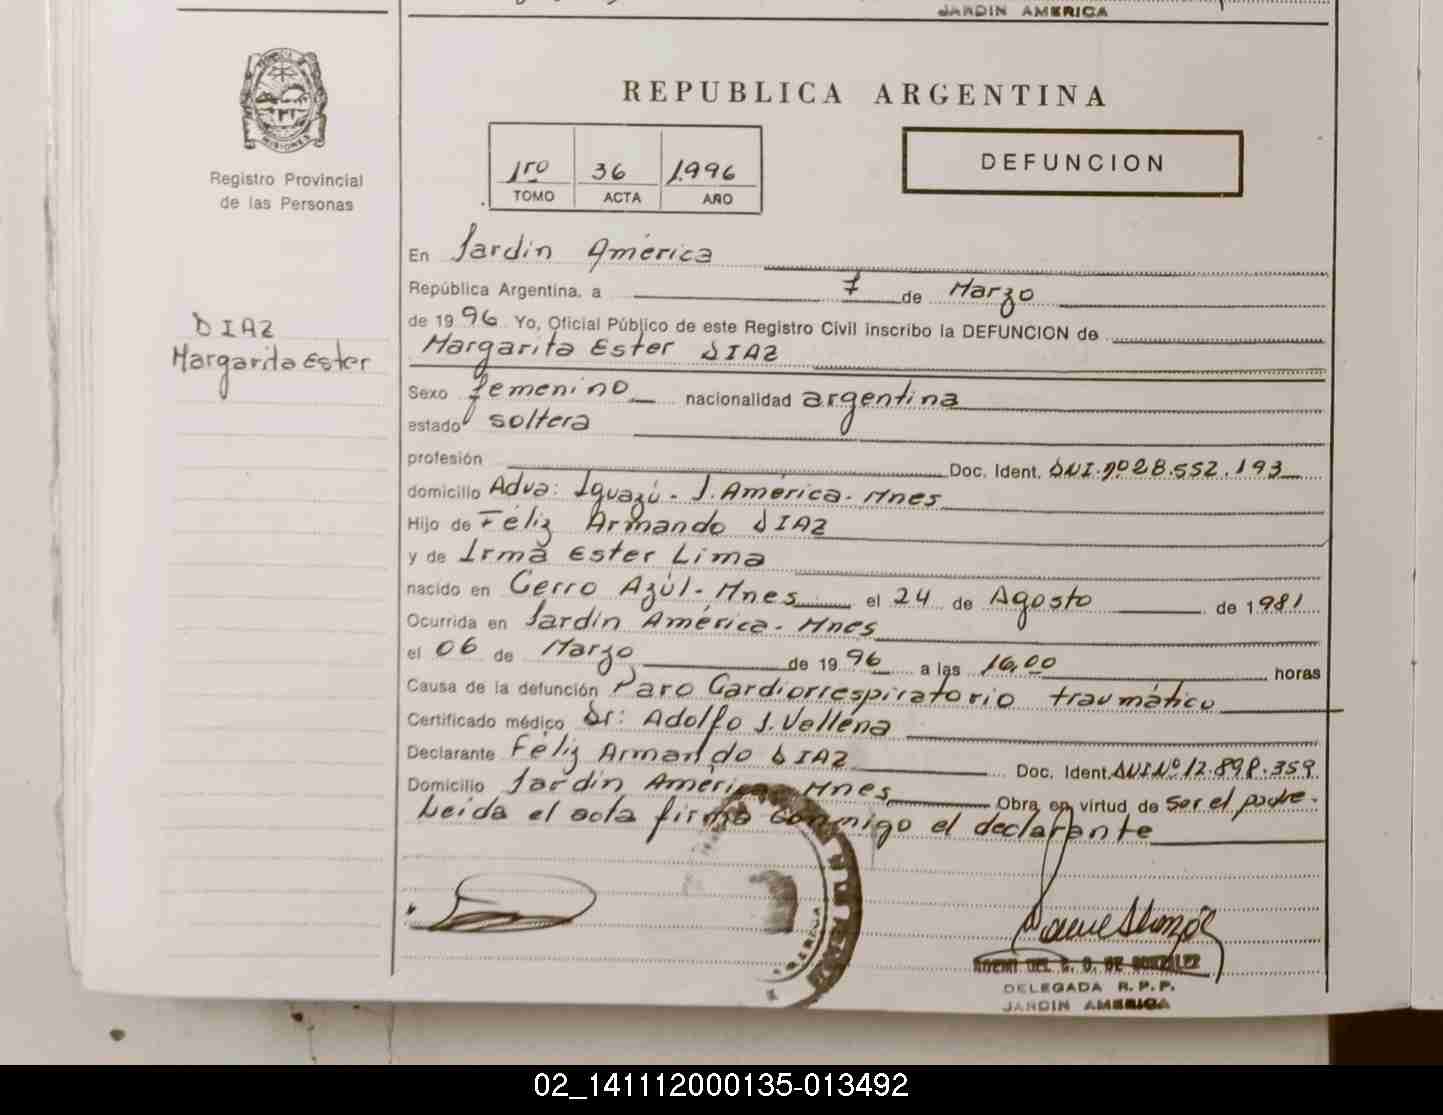 JARDIN AMERICA
REPUBLICA ARGENTINA
MISIONES
Registro Provincial
de las Personas
1ro 36 1.996
TOMO ACTA AÑO
DEFUNCION
DIAZ
Margarita Ester
En Jardín América
República Argentina, a 7 de Marzo
de 1996 Yo, Oficial Público de este Registro Civil inscribo la DEFUNCION de
Margarita Ester DIAZ
Sexo femenino nacionalidad argentina
estado soltera
profesión Doc. Ident. DNI.nº28.552.193
domicilio Avda: Iguazú - J. América - Mnes
Hijo de Féliz Armando DIAZ
y de Irma Ester Lima
nacido en Cerro Azúl - Mnes el 24 de Agosto de 1.981
Ocurrida en Jardín América - Mnes
el 06 de Marzo de 1996 a las 16,00 horas
Causa de la defunción Paro Cardiorrespiratorio traumático
Certificado médico Dr: Adolfo J.
Declarante Féliz Armando DIAZ Doc. Ident. DNI.Nº12.898.359
Domicilio Jardín América Mnes Obra en virtud de ser el padre.
Leida el acta firma conmigo el declarante
DE GONZALEZ
DELEGADA R. P. P.
JARDIN AMERICA
02_141112000135-013492